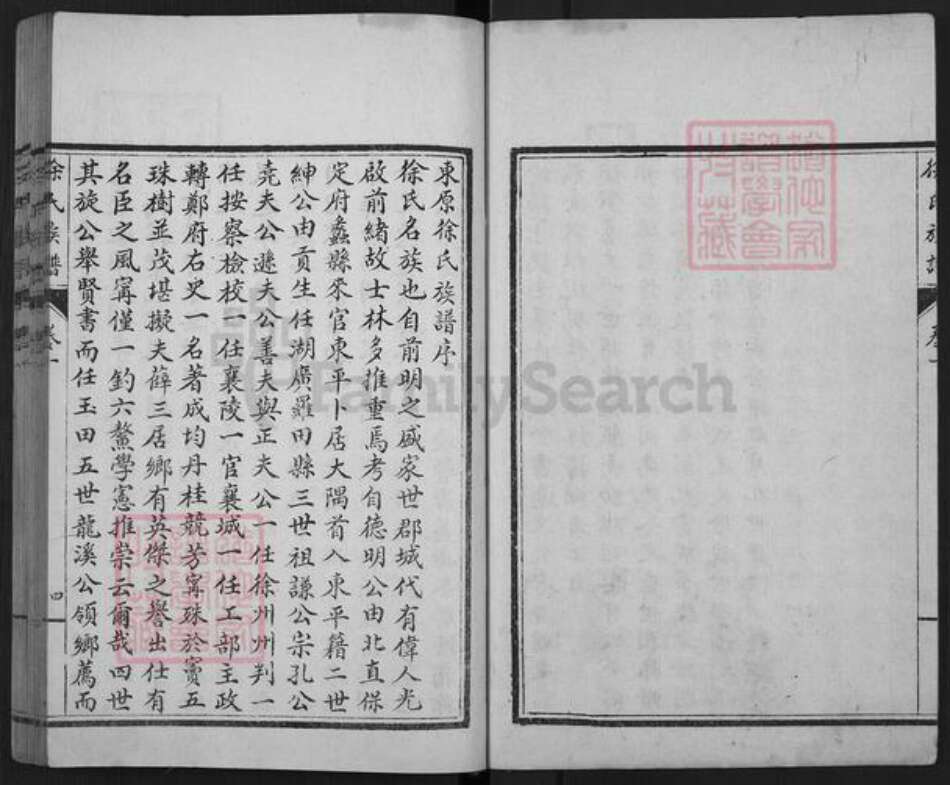 徐氏族譜
卷一
東原徐氏族譜序
徐氏名族也自前明之盛家世郡城代有偉人光
啟前緒故士林多推重焉考自德明公由北直保
定府蠡縣來官東平卜居大隅首入東平籍二世
紳公由貢生任湖廣羅田縣三世祖謙公宗孔公
堯夫公遜夫公善夫與正夫公一任徐州州判一
任按察檢校一任襄陵一官襄城一任工部主政
轉鄭府右史一名著成均丹桂競芳寗殊於竇五
珠樹並茂堪擬夫薛三居鄉有英傑之譽出仕有
名臣之風寗僅一釣六鰲學憲推崇云爾哉四世
其旋公舉賢書而任玉田五世龍溪公領鄉薦而
徐氏族譜
卷一
四
FamilySearch